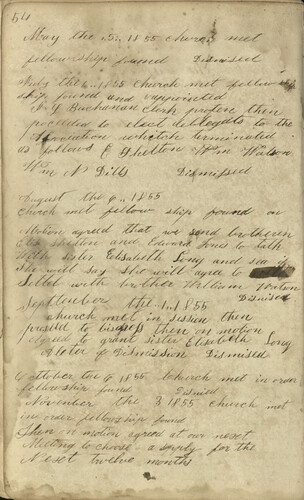 54
May the 5. 1855 church met
fellowship found Dismised
July the 6. 1855 church met fellow
ship found and appointed
Buchanan Clerk protem then
proceded to elect delegets to the
which terminated
as follows E Shelton Wm Watson
Wm N Dills Dismissed
August the 6., 1855
Church met fellow ship found on
Motion agreed that we send brotheren
Shelton and Edward Jones to talk
With sister Elisabeth Long and see if
She will say she will agree to
Settel with brother William
Dismised
September the 1. 1855
church met in session then
proseed to then on motion
agreed to grant sister Elisebeth Long
A leter of Dismission Dismised
October the 6 1855 Church met in order
fellowship found Dismised
November the 3 1855 church met
in order fellowship found
then on motion agreed at our next
Meeting to choose a suply for the
Next twelve months